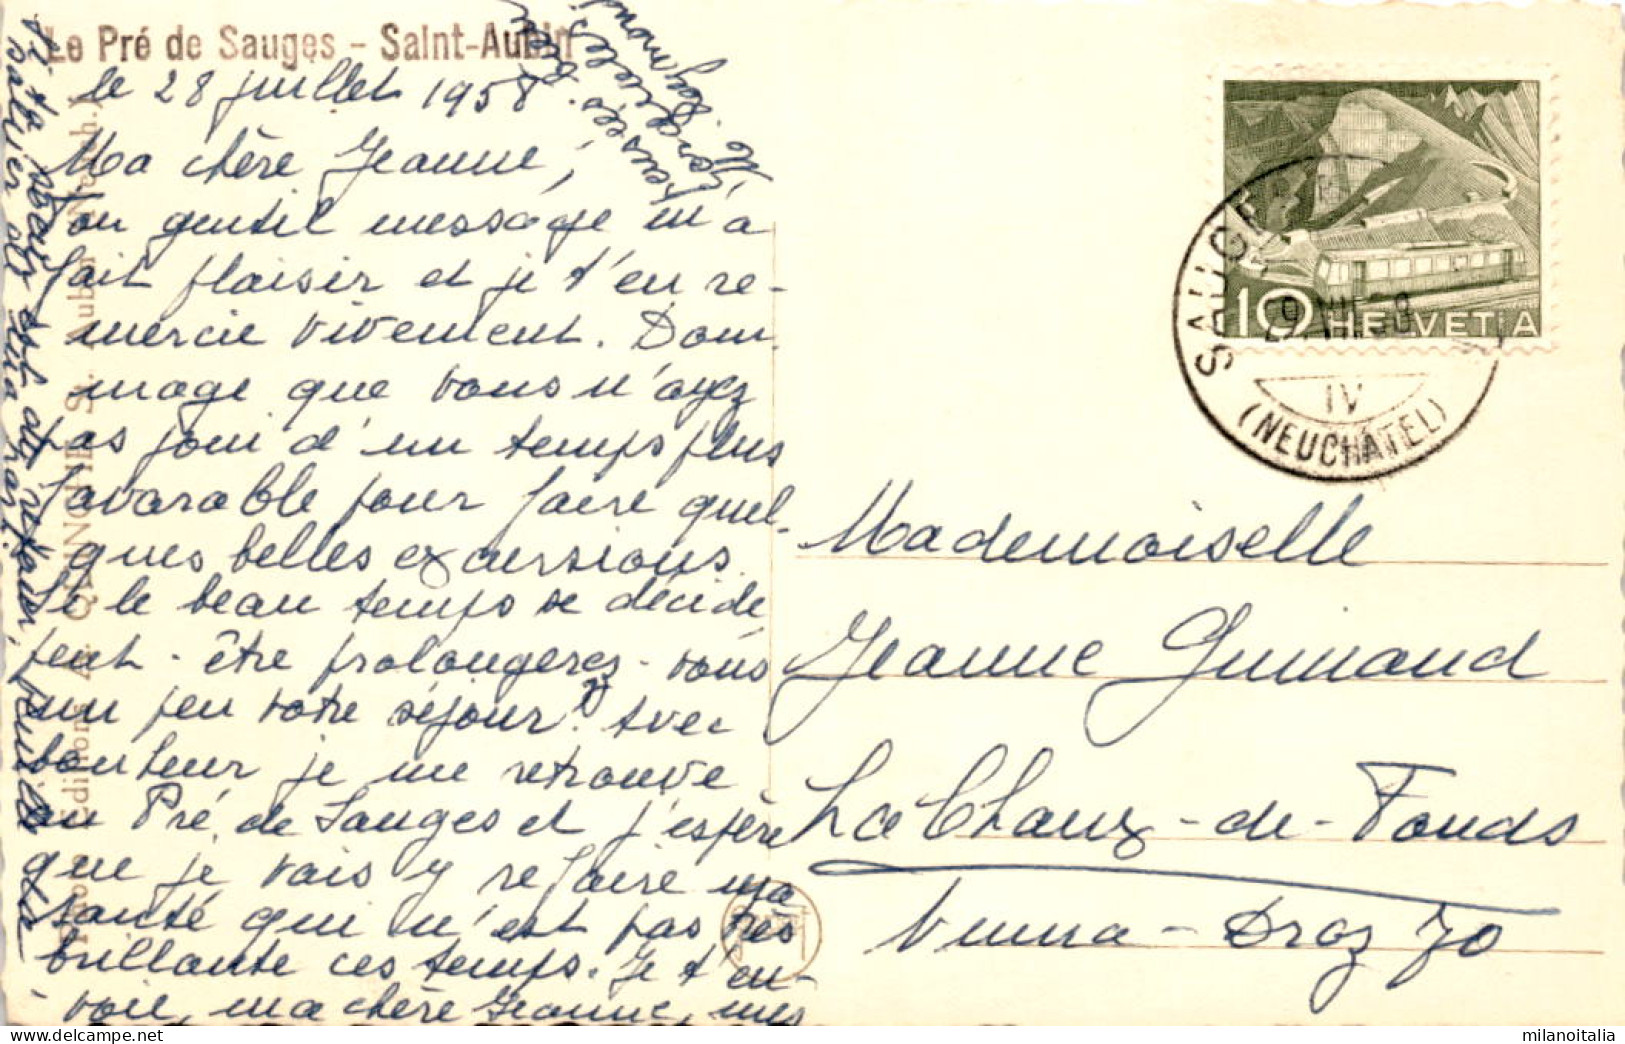 Le Pré de Sauges - Saint-Aubin
le 28 juillet 1958.
Ma chère Jeanne,
Ton gentil message m'a
fait plaisir et je t'en re-
mercie vivement. Dom-
mage que vous n'ayez
pas joui d'un temps plus
favorable pour faire quel-
ques belles excursions.
Si le beau temps se décide,
peut-être prolongerez-vous
un peu votre séjour? Avec
bonheur je me retrouve
au Pré de Sauges et j'espère
que je vais y refaire ma
santé qui n'est pas très
brillante ces temps. Je t'en-
voie, ma chère Jeanne, mes
pensées
Si ta
est au
HELVETIA
10
SAUGES
IV
(NEUCHÂTEL)
Mademoiselle
Jeanne Guinand
La Chaux-de-Fonds
Numa-Droz 70
milanoitalia